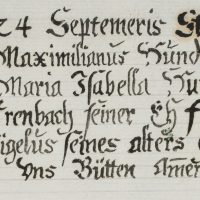 24 Septemeris
Maximilianus
Maria Isabella
renbach seiner Eh
igelus seines alters
Vns Bitten Amen